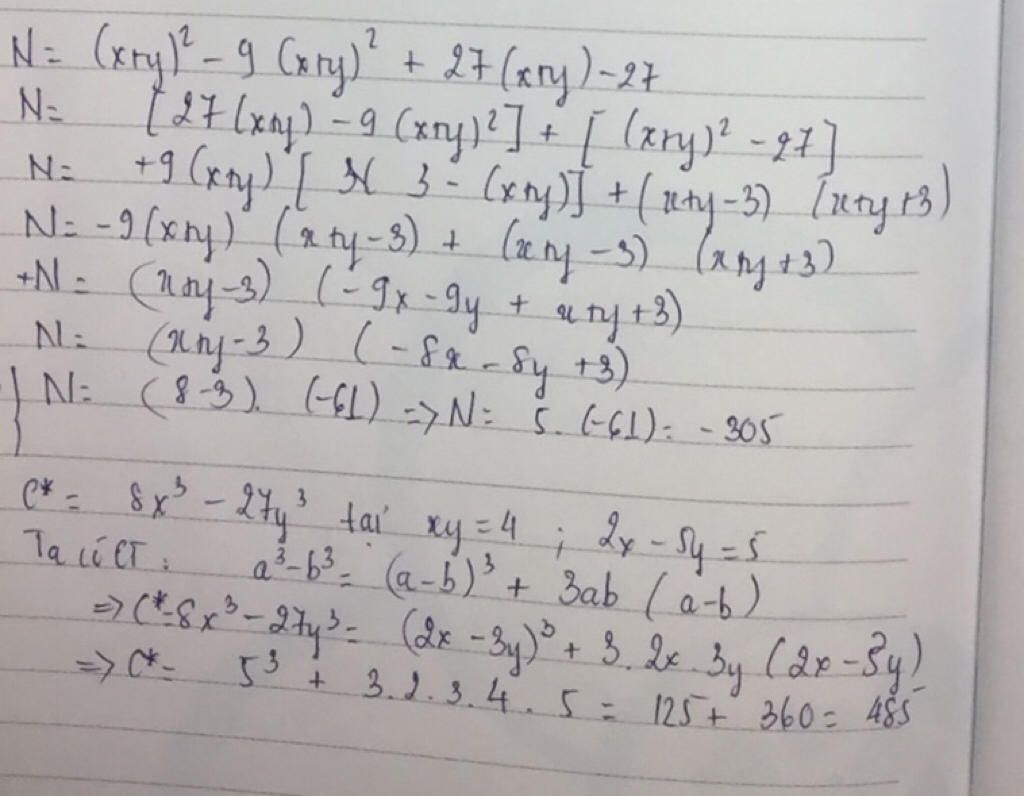 N= (x+y)² - 9 (x+y)² + 27(x+y) - 27
N= [27(x+y) - 9 (x+y)²] + [(x+y)² - 27]
N= +9(x+y) [ 3 - (x+y)] + (x+y-3) (x+y+3)
N= -9(x+y) (x+y-3) + (x+y-3) (x+y+3)
+N= (x+y-3) (-9x-9y + x+y+3)
N= (x+y-3) (-8x-8y+3)
N= (8-3). (-61) => N= 5. (-61)= -305
C*= 8x³ - 27y³ tại xy=4 ; 2x - 5y=5
Ta có CT: a³-b³= (a-b)³ + 3ab (a-b)
=> C*=8x³-27y³= (2x-3y)³ + 3.2x.3y (2x-3y)
=> C*= 5³ + 3.2.3.4.5 = 125+ 360= 485